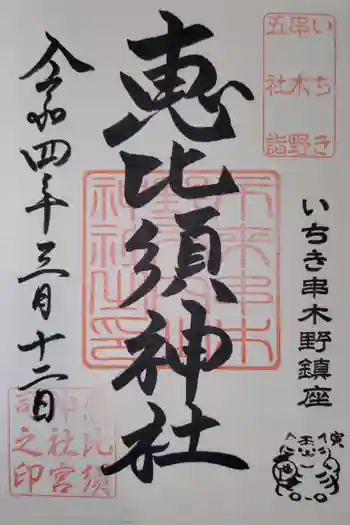 いちき
串木野
五社詣
いちき串木野鎮座
恵比須神社
令和四年三月十二日
恵比須
神社宮
司之印